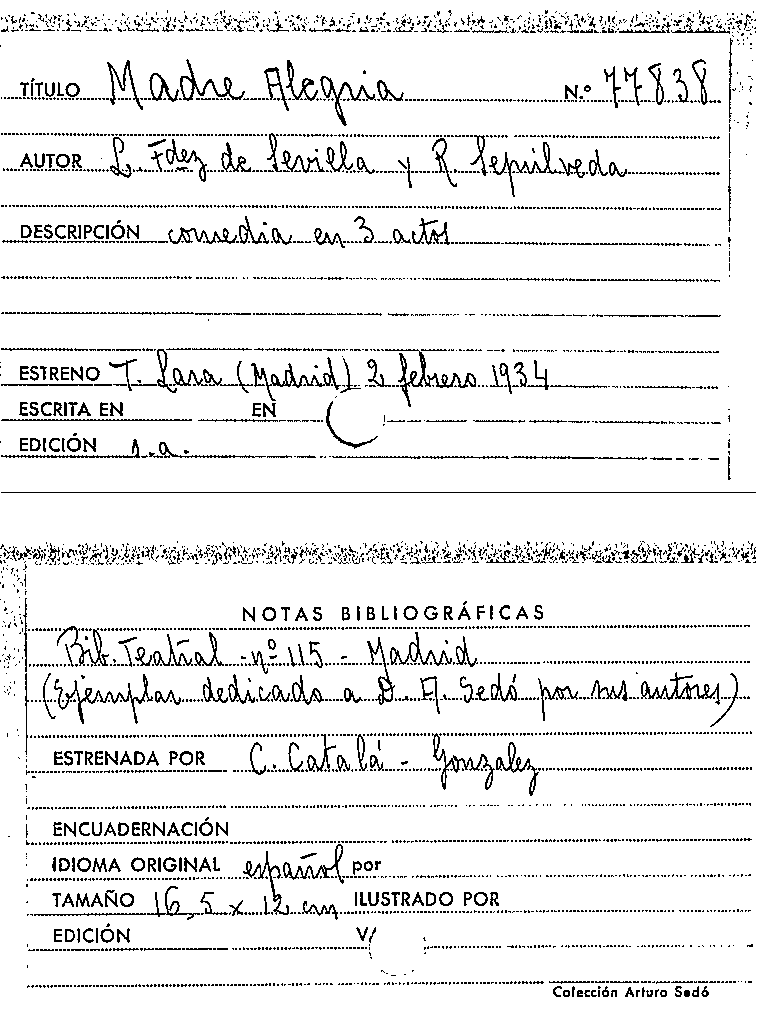 TÍTULO Madre Alegria N.º 77838
AUTOR L. Fdez de Sevilla y R. Sepúlveda
DESCRIPCIÓN comedia en 3 actos
ESTRENO T. Lara (Madrid) 2 febrero 1934
ESCRITA EN EN
EDICIÓN s.a.
NOTAS BIBLIOGRÁFICAS
Bib. Teatral - nº 115 - Madrid
(Ejemplar dedicado a D. A. Sedó por sus autores)
ESTRENADA POR C. Catalá - Gonzalez
ENCUADERNACIÓN
IDIOMA ORIGINAL español por
TAMAÑO 16,5 x 12 cm ILUSTRADO POR
EDICIÓN V/
Colección Arturo Sedó